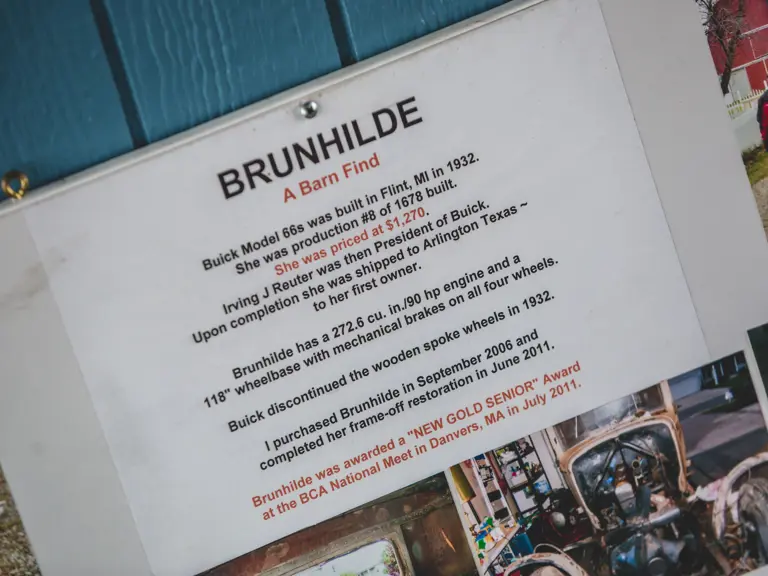 BRUNHILDE
A Barn Find
Buick Model 66s was built in Flint, MI in 1932.
She was production #8 of 1678 built.
She was priced at $1,270.
Irving J Reuter was then President of Buick.
Upon completion she was shipped to Arlington Texas ~
to her first owner.
Brunhilde has a 272.6 cu. in./90 hp engine and a
118" wheelbase with mechanical brakes on all four wheels.
Buick discontinued the wooden spoke wheels in 1932.
I purchased Brunhilde in September 2006 and
completed her frame-off restoration in June 2011.
Brunhilde was awarded a "NEW GOLD SENIOR" Award
at the BCA National Meet in Danvers, MA in July 2011.